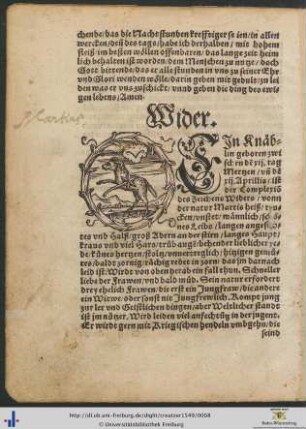 chende/ das die Nachtstunden krefftiger seien/ in allen
wercken/ deß des tags/ habe ich derhalben/ mit hohem
fleiß/ im besten wöllen offenbaren/ das lange zeit heim
lich behalten ist worden/ dem Menschen zu nutze/ doch
Gott bittende/ das er alle stunden in vns zu seiner Ehr
vnd Glori wenden wölle/ darin geben mit gedult zu lei
den was er vns zuschickt/ vnnd geben die ding des ewi
gen lebens/ Amen.
Wider.
EIn Knäb-
lin geboren zwi
schen dē xij. tag
Mertzen/ vñ dē
xij. Aprillis/ ist
der Complexiō
des Zeichens Widers/ vonn
der natur Martis heiß/ tru
cken/ vnstet/ männlich/
nes Leibs/ langen angesi
tes vnd Halß/ groß Adern an der stirn/ langes Haupt/
kraus vnd viel Haro/ trüb auge/ behender lieblicher re
de/ künes hertzen/ stoltz/ vnmeetreglich/ hitzigen gemü
tes/ baldt zornig/ rächig/ redet in zorn/ das jm darnach
leid ist: Wirdt von oben herab ein fall thun. Schneller
liebe der Frawen/ vnd bald müd. Sein natur erfordert
drey ehelich Frawen/ die erst ein Jungfraw/ die andere
ein Witwe/ oder sonst nit Jungfrewlich. Kompt jung
zur ler vnd Geistlichen dingen/ aber Weltlicher standt
ist jm nützer. Wird leiden viel anfechtūg in der jugent.
Er wirdt gern mit Kriegischen hendeln vmbgehn/ die
seind
http://dl.ub.uni-freiburg.de/diglit/creutzer1540/0008
© Universitätsbibliothek Freiburg